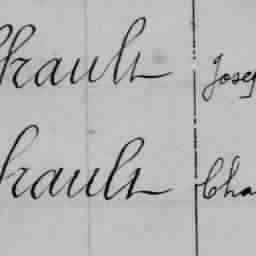 hault Josep
hault Cha